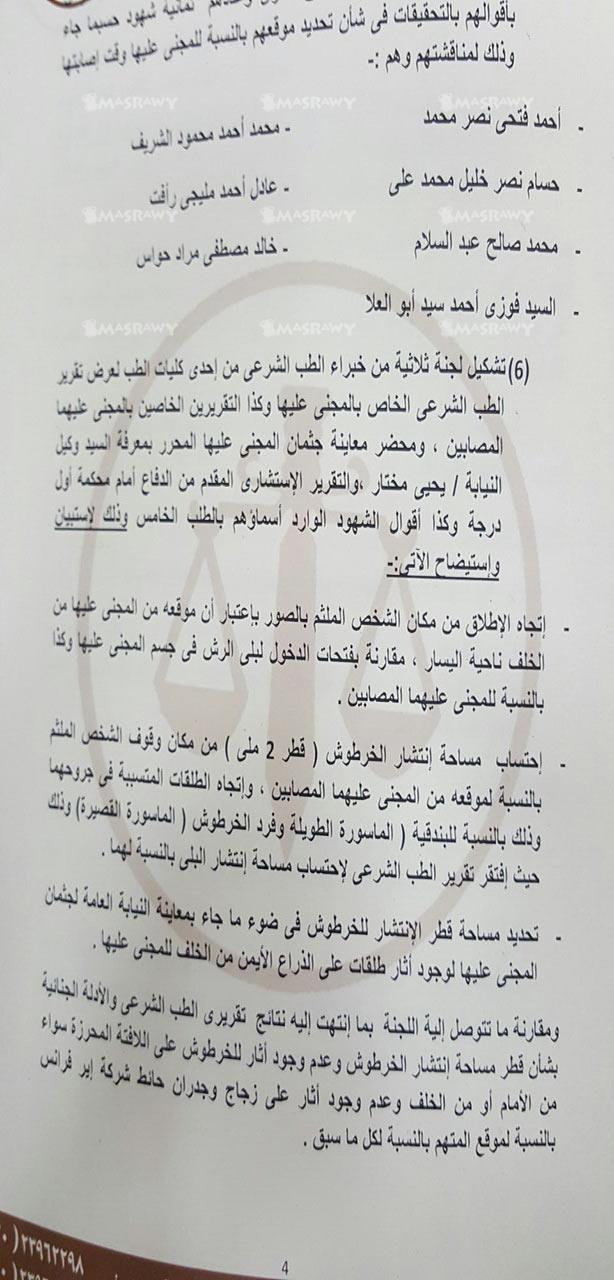 بأقوالهم بالتحقيقات فى شأن تحديد موقعهم بالنسبة للمجنى عليها وقت إصابتها
ثمانية شهود حسبما جاء
وذلك لمناقشتهم وهم :-
- أحمد فتحى نصر محمد
- محمد أحمد محمود الشريف
- حسام نصر خليل محمد على
- عادل أحمد مليجى رأفت
- محمد صالح عبد السلام
- خالد مصطفى مراد حواس
- السيد فوزى أحمد سيد أبو العلا
(6) تشكيل لجنة ثلاثية من خبراء الطب الشرعى من إحدى كليات الطب لعرض تقرير
الطب الشرعى الخاص بالمجنى عليها وكذا التقريرين الخاصين بالمجنى عليهما
المصابين ، ومحضر معاينة جثمان المجنى عليها المحرر بمعرفة السيد وكيل
النيابة / يحيى مختار ،والتقرير الإستشارى المقدم من الدفاع أمام محكمة أول
درجة وكذا أقوال الشهود الوارد أسماؤهم بالطلب الخامس وذلك لإستبيان
وإستيضاح الآتى:-
- إتجاه الإطلاق من مكان الشخص الملثم بالصور بإعتبار أن موقعه من المجنى عليها من
الخلف ناحية اليسار ، مقارنة بفتحات الدخول لبلى الرش فى جسم المجنى عليها وكذا
بالنسبة للمجنى عليهما المصابين .
- إحتساب مساحة إنتشار الخرطوش ( قطر 2 ملى ) من مكان وقوف الشخص الملثم
بالنسبة لموقعه من المجنى عليهما المصابين ، وإتجاه الطلقات المتسببة فى جروحهما
وذلك بالنسبة للبندقية ( الماسورة الطويلة وفرد الخرطوش ( الماسورة القصيرة) وذلك
حيث إفتقر تقرير الطب الشرعى لإحتساب مساحة إنتشار البلى بالنسبة لهما .
- تحديد مساحة قطر الإنتشار للخرطوش فى ضوء ما جاء بمعاينة النيابة العامة لجثمان
المجنى عليها لوجود أثار طلقات على الذراع الأيمن من الخلف للمجنى عليها .
ومقارنة ما تتوصل إلية اللجنة بما إنتهت إليه نتائج تقريرى الطب الشرعى والأدلة الجنائية
بشأن قطر مساحة إنتشار الخرطوش وعدم وجود أثار للخرطوش على اللافتة المحرزة سواء
من الأمام أو من الخلف وعدم وجود أثار على زجاج وجدران حائط شركة إير فرانس
بالنسبة لموقع المتهم بالنسبة لكل ما سبق .
4
٢٣٩٦٢٢٩٨
MASRAWY
MASRAWY
MASRAWY
MASRAWY
MASRAWY
MASRAWY
MASRAWY
MASRAWY
MASRAWY